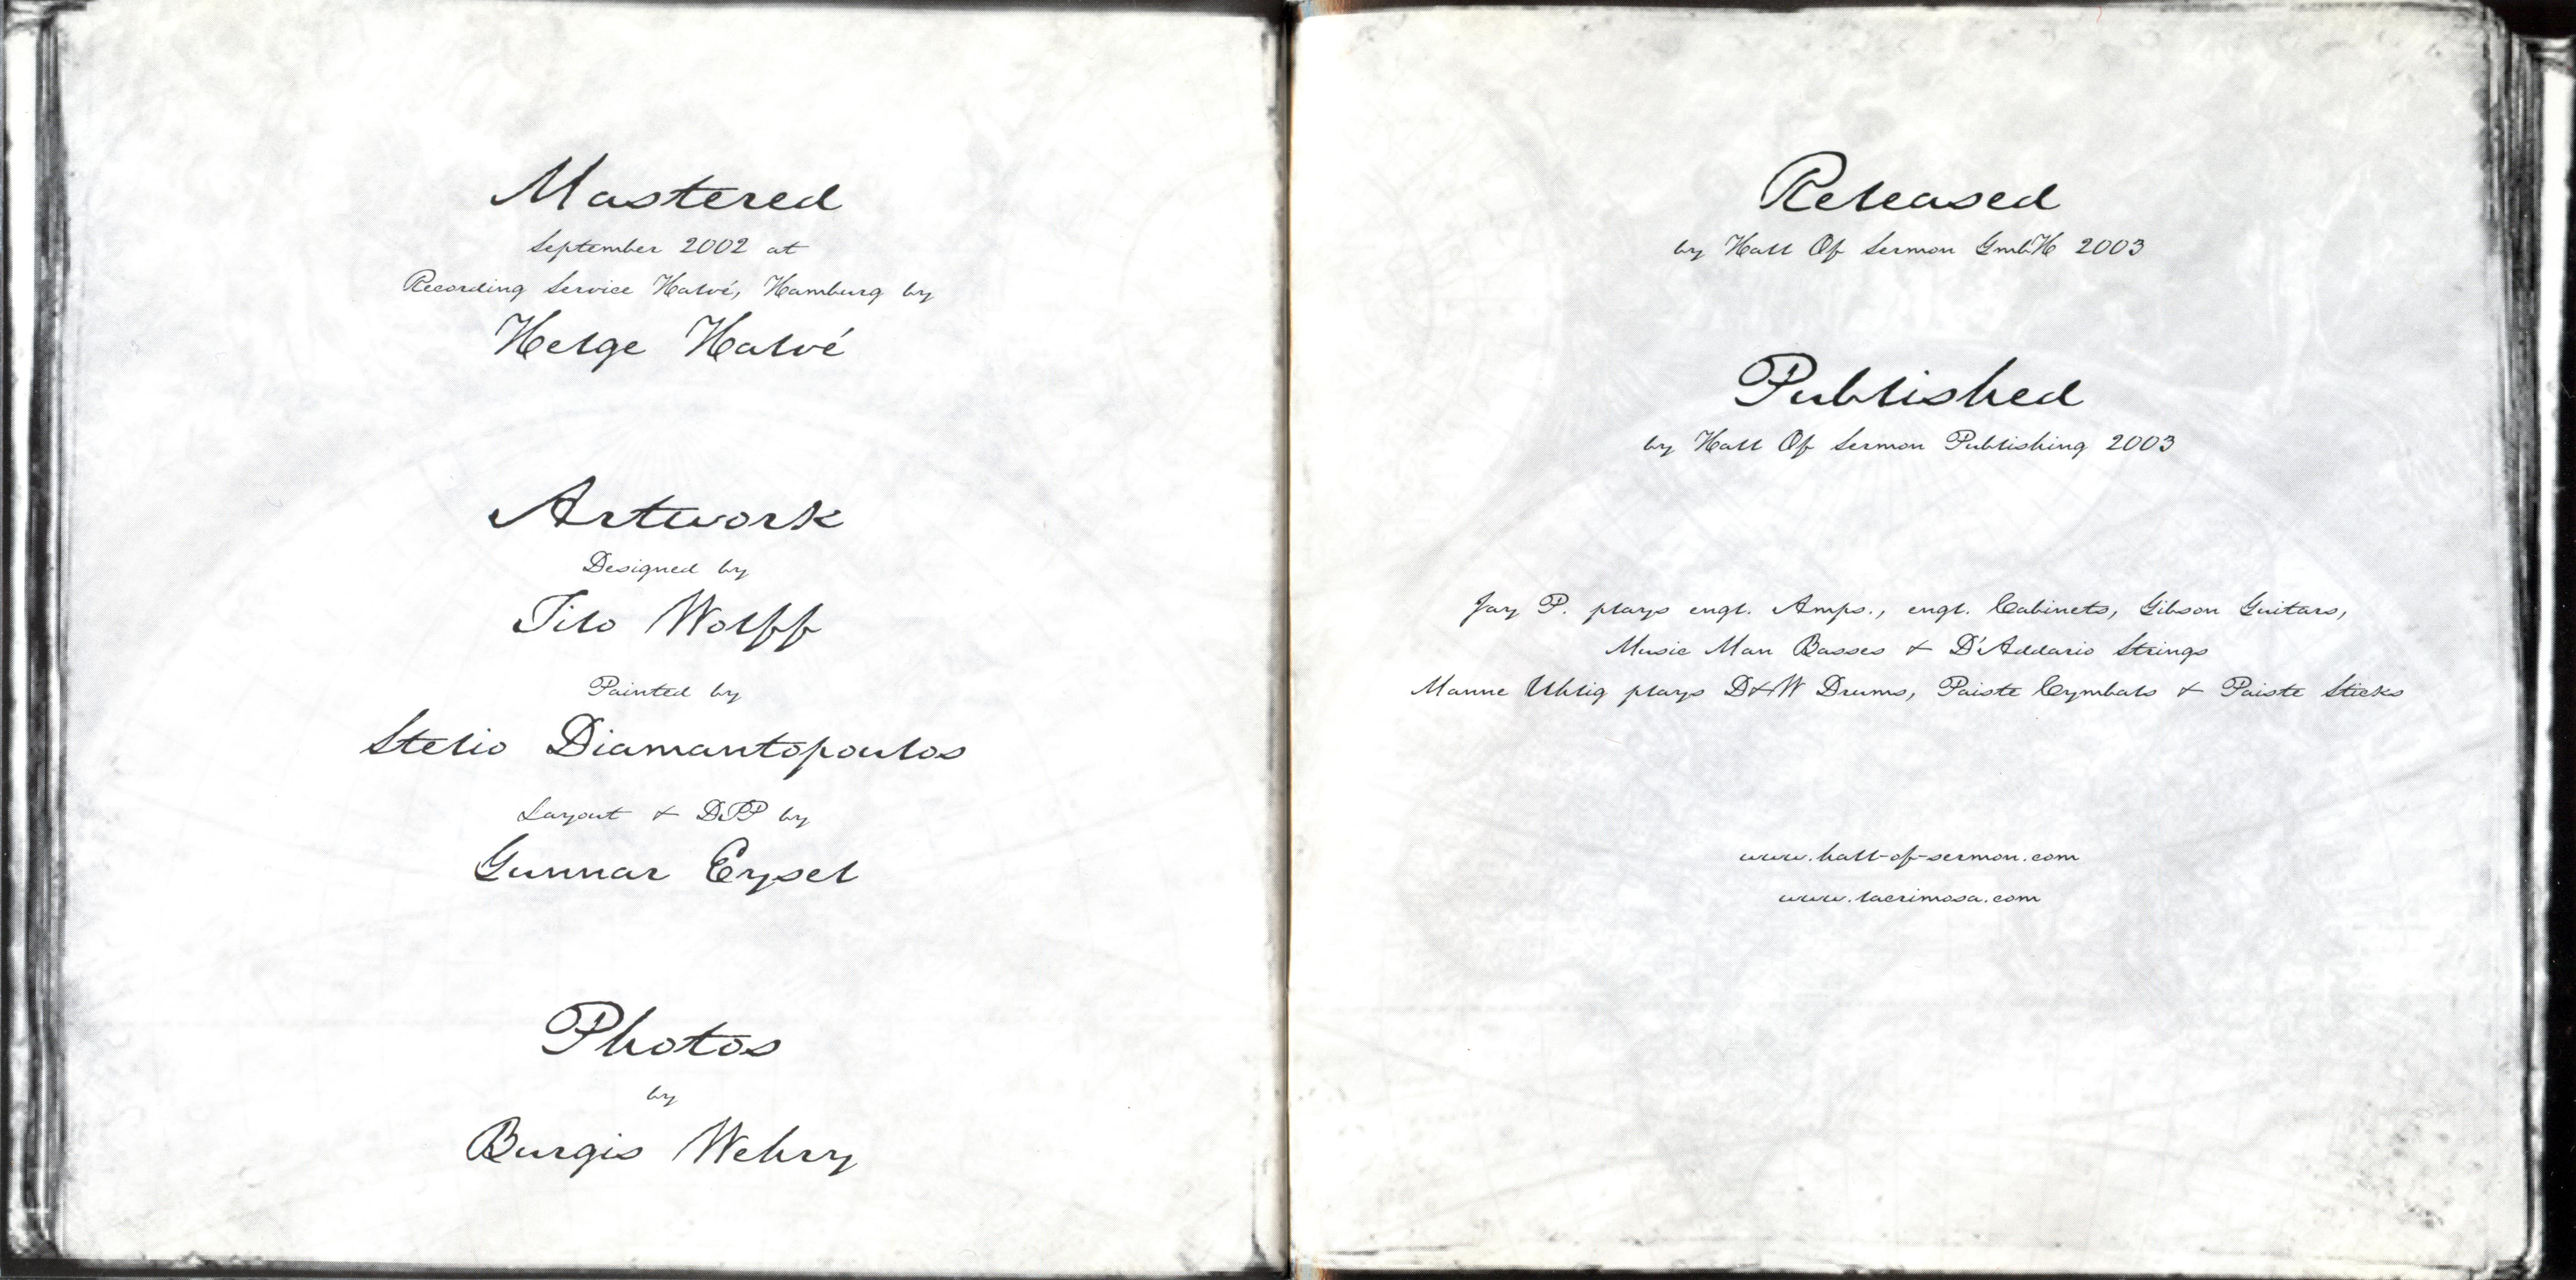 Mastered
September 2002 at
Recording Service Halvé, Hamburg by
Helge Halvé
Artwork
Designed by
Tilo Wolff
Painted by
Stelio Diamantopoulos
Layout & DTP by
Gunnar Eysel
Photos
by
Burgis Wehry
Released
by Hall Of Sermon GmbH 2003
Published
by Hall Of Sermon Publishing 2003
Jay P. plays engl. Amps., engl. Cabinets, Gibson Guitars,
Music Man Basses & D'Addario Strings
Manne Uhlig plays D&W Drums, Paiste Cymbals & Paiste Sticks
www.hall-of-sermon.com
www.lacrimosa.com